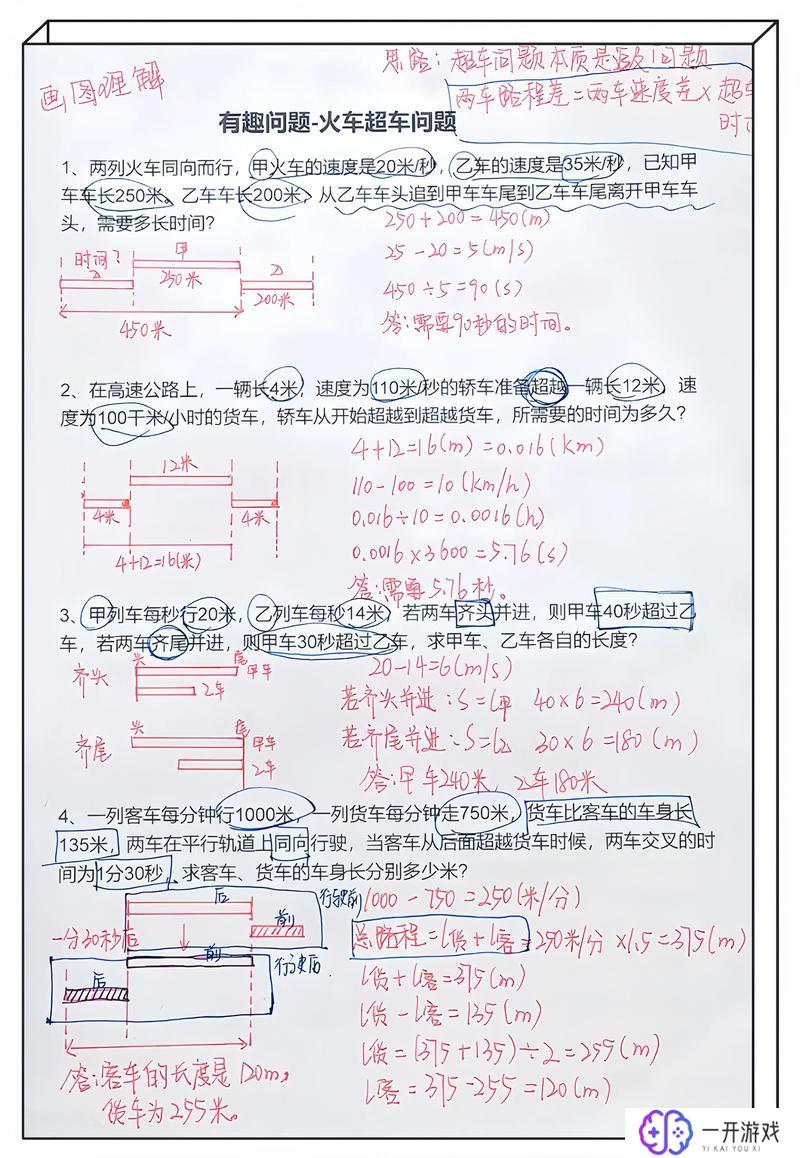 画图理解
思路：超车问题本质是追及问题
两车路程差=两车速度差×超车
时间
有趣问题-火车超车问题
1、两列火车同向而行，甲火车的速度是20米/秒，乙车的速度是35米/秒，已知甲
车车长250米。乙车车长200米，从乙车车头追到甲车车尾到乙车车尾离开甲车车
头，需要多长时间？
250+200=450(m)
25-20=5(m/s)
450÷5=90(s)
答:需要90秒的时间。
时间?
乙
甲
250米
乙
200米
450米
2、在高速公路上，一辆长4米，速度为110米/秒的轿车准备超越一辆长12米，速
度为100千米/小时的货车，轿车从开始超越到超越货车，所需要的时间为多久？
4+12=16(m)=0.016(km)
110-100=10(km/h)
0.016÷10=0.0016(h)
0.0016×3600=5.76(s)
答:需要5.76秒。
12米
4米
4米
4+12=16(米)
3、甲列车每秒行20米，乙列车每秒14米，若两车齐头并进，则甲车40秒超过乙
车，若两车齐尾并进，则甲车30秒超过乙车，求甲车、乙车各自的长度？
20-14=6(m/s)
若齐头并进:S=L甲 40×6=240(m)
若齐尾并进:S=L乙 30×6=180(m)
答:甲车240米，乙车180米
齐头
头
尾
甲车
乙车
齐尾
头
尾
甲车
乙车
4、一列客车每分钟行1000米，一列货车每分钟走750米，货车比客车的车身长
135米，两车在平行轨道上同向行驶，当客车从后面超越货车时候，两车交叉的时
间为1分30秒，求客车、货车的车身长分别多少米？
1000-750=250(米/分)
总路程=L货+L客=250米/分×1.5=375(m)
L货+L客=375(m)
L货-L客=135(m)
L货=(375+135)÷2=255(m)
L客=375-255=120(m)
后
行驶前
前
一分30秒后
前
行驶后
后
答:客车的长度是120m,
货车为255米。
一开游戏
YI KAI YOU XI